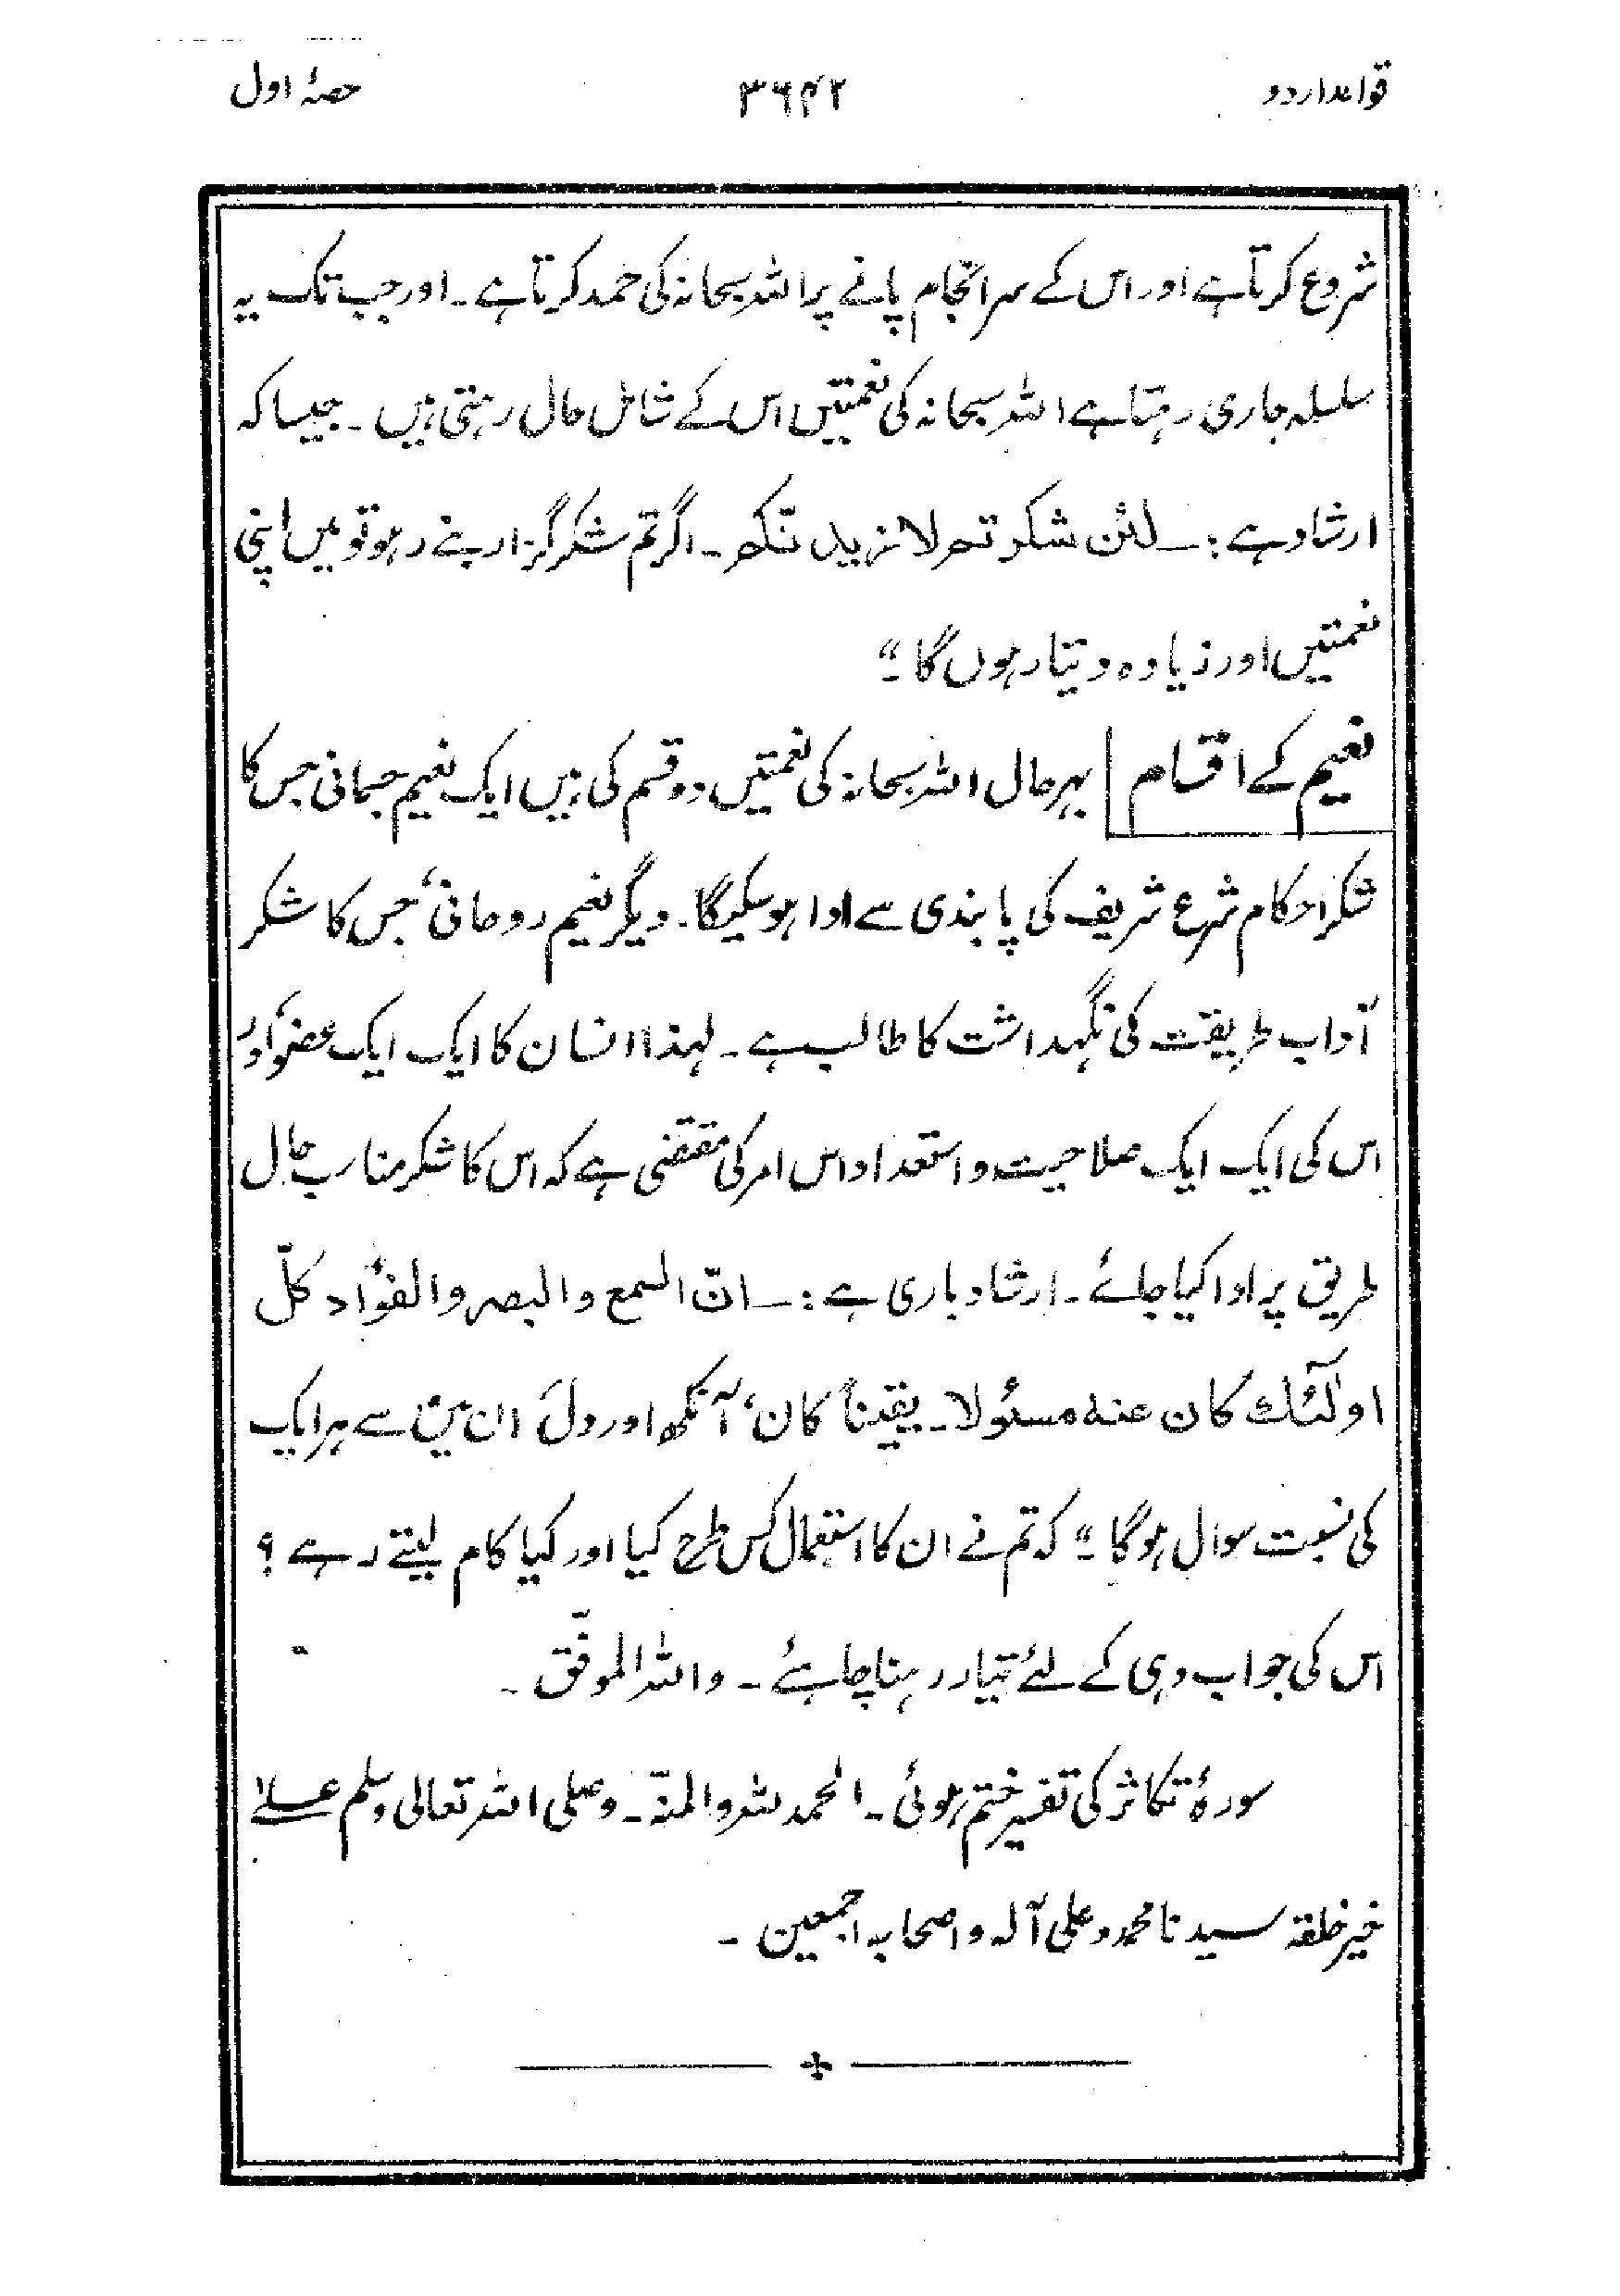 قواعد اردو ۳۶۴۲ حصۂ اول
شروع کرتا ہے اور اس کے سرانجام پانے پر اللہ سبحانہ کی حمد کرتا ہے۔ اور جب تک یہ
سلسلہ جاری رہتا ہے اللہ سبحانہ کی نعمتیں اس کے شامل حال رہتی ہیں۔ جیسا کہ
ارشاد ہے:۔ لئن شکر تم لا زید نّکم۔ اگر تم شکر گزار بنے رہو تو میں اپنی
نعمتیں اور زیادہ دیتا رہوں گا۔"
نعیم کے اقسام | بہر حال اللہ سبحانہ کی نعمتیں دو قسم کی ہیں ایک نعیم جسمانی جس کا
شکر احکام شرع شریف کی پابندی سے ادا ہو سکیگا۔ دیگر نعیم روحانی، جس کا شکر
آداب طریقت کی نگہداشت کا طالب ہے۔ لہذا انسان کا ایک ایک عضو اور
اس کی ایک ایک صلاحیت و استعداد اس امر کی مقتضی ہے کہ اس کا شکر مناسب حال
طریق پر ادا کیا جائے۔ ارشاد باری ہے:۔ انّ السمع والبصر والفؤاد کلّ
اولٰٓئک کان عنہ مسئولا۔ یقیناً کان، آنکھ اور دل، ان میں سے ہر ایک
کی نسبت سوال ہوگا۔" کہ تم نے ان کا استعمال کس طرح کیا اور کیا کام لیتے رہے؟
اس کی جواب دہی کے لئے تیار رہنا چاہئے۔ واللہ الموفّق۔
سورۂ تکاثر کی تفسیر ختم ہوئی۔ الحمد للہ والمنّۃ۔ وصلی اللہ تعالی وسلم علےٰ
خیر خلقہ سیدنا محمد وعلی آلہ واصحابہ اجمعین۔